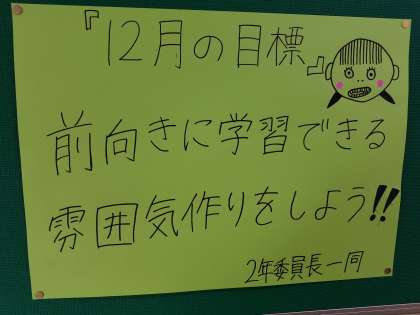 『12月の目標』
前向きに学習できる
雰囲気作りをしよう!!
2年委員長一同